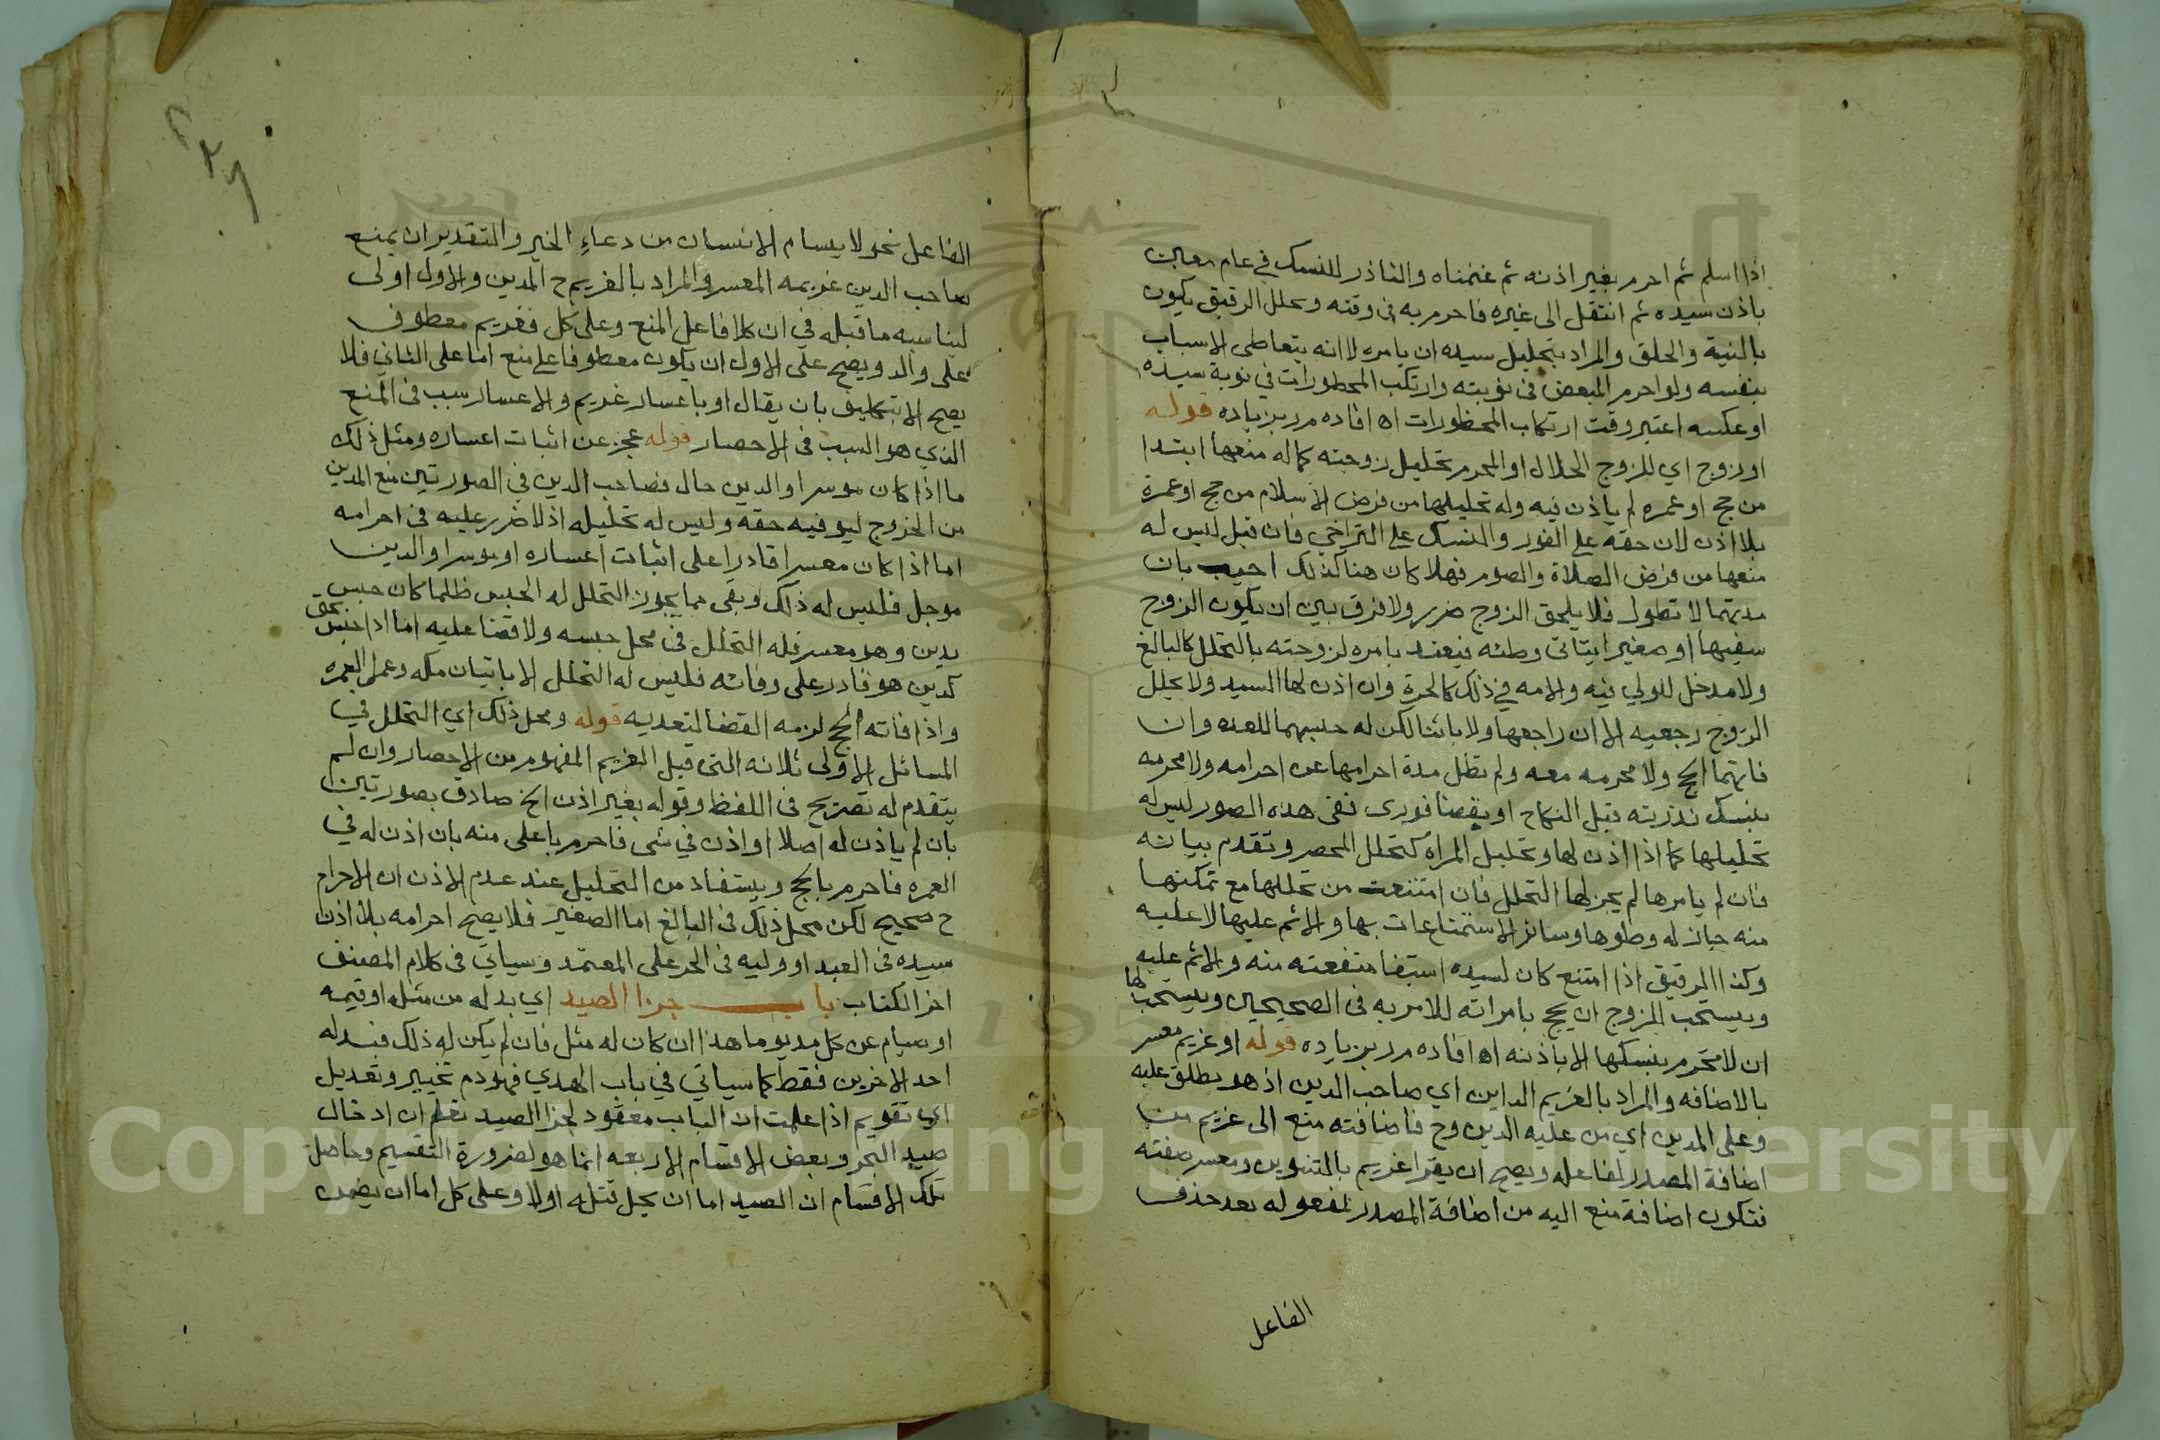 اذا اسلم ثم احرم بغير اذنه ثم غنمناه والناذر للنسك في عام معين
باذن سيده ثم انتقل الى غيره فاحرم به في وقته وتحلل الرقيق يكون
بالنية والحلق والمراد بتحليل سيده ان يامره لا انه يتعاطى الاسباب
بنفسه ولو احرم المبعض في نوبته وارتكب المحظورات في نوبة سيده
او عكسه اعتبر وقت ارتكاب المحظورات اه افاده مر بزياده قوله
او زوج اي للزوج الحلال او المحرم تحليل زوجته كما له منعها ابتدا
من حج او عمره لم ياذن فيه وله تحليلها من فرض الاسلام من حج او عمرة
بلا اذن لان حقه على الفور والنسك على التراخي فان قيل ليس له
منعها من فرض الصلاة والصوم فهلا كان هنا كذلك اجيب بان
مدتهما لا تطول فلا يلحق الزوج ضرر ولا فرق بين ان يكون الزوج
سفيها او صغيرا يتاتى وطئه فيعتد بامره لزوجته بالتحلل كالبالغ
ولا مدخل للولي فيه والامه في ذلك كالحرة وان اذن لها السيد ولا يحلل
الزوج رجعيه الا ان راجعها ولا بائنا لكن له حبسهما للعده وان
فاتهما الحج ولا محرمه معه ولم تطل مدة احرامها عن احرامه ولا محرمه
بنسك نذرته قبل النكاح او بقضا فوري ففي هذه الصور ليس له
تحليلها كما اذا اذن لها وتحليل المراه كتحلل المحصر وتقدم بيانه
فان لم يامرها لم يجز لها التحلل فان امتنعت من تحللها مع تمكنها
منه جاز له وطوها وسائر الاستمتاعات بها والاثم عليها لا عليه
وكذا الرقيق اذا امتنع كان لسيده استيفا منفعته منه والاثم عليه
ويستحب للزوج ان يحج بامراته للامر به في الصحيحين ويستحب لها
ان لا تحرم بنسكها الا باذنه اه افاده مر بزياده قوله او غريم معسر
بالاضافه والمراد بالغريم الداين اي صاحب الدين اذ هو يطلق عليه
وعلى المدين اي من عليه الدين وح فاضافته منع الى غريم من
اضافة المصدر لفاعله ويصح ان يقرا غريم بالتنوين ومعسر صفته
فتكون اضافة منع اليه من اضافة المصدر لمفعوله بعد حذف
الفاعل
الفاعل نحو لا يسام الانسان من دعاء الخير والتقدير ان يمنع
صاحب الدين غريمه المعسر والمراد بالغريم ح المدين والاول اولى
ليناسبه ما قبله في ان كلا فاعل المنع وعلى كل فغريم معطوف
على والد ويصح على الاول ان يكون معطوفا على منع اما على الثاني فلا
يصح الا بتكليف بان يقال او باعسار غريم والاعسار سبب في المنع
الذي هو السبب في الاحصار قوله عجز عن اثبات اعساره ومثل ذلك
ما اذا كان موسرا والدين حال فصاحب الدين في الصورتين منع المدين
من الخروج ليوفيه حقه وليس له تحليله اذ لا ضرر عليه في احرامه
اما اذا كان معسرا قادرا على اثبات اعساره او موسرا والدين
موجل فليس له ذلك وبقي مما يجوز التحلل له الحبس ظلما كان حبس
بدين وهو معسر فله التحلل في محل حبسه ولا قضا عليه اما اذا حبس بحق
كدين هو قادر على وفائه فليس له التحلل الا باتيان مكه وعمل العمره
واذا فاته الحج لزمه القضا لتعديه قوله ومحل ذلك اي التحلل في
المسائل الاولى ثلاثه التي قبل الغريم المفهوم من الاحصار وان لم
يتقدم له تصريح في اللفظ وقوله بغير اذن الخ صادق بصورتين
بان لم ياذن له اصلا او اذن في شي فاحرم باعلى منه بان اذن له في
العمره فاحرم بالحج ويستفاد من التحليل عند عدم الاذن ان الاحرام
ح صحيح لكن محل ذلك في البالغ اما الصغير فلا يصح احرامه بلا اذن
سيده في العبد او وليه في الحر على المعتمد وسياتي في كلام المصنف
اخر الكتاب باب جزا الصيد اي بدله من مثله او قيمه
او صيام عن كل مد يوما هذا ان كان له مثل فان لم يكن له ذلك فبدله
احد الاخرين فقط كما سياتي في باب الهدي فهو دم تخيير وتعديل
اي تقويم اذا علمت ان الباب معقود لجزا الصيد تعلم ان ادخال
صيد البحر وبعض الاقسام الاربعه انما هو لضرورة التقسيم وحاصل
تلك الاقسام ان الصيد اما ان يحل قتله اولا وعلى كل اما ان يضمن
Copyright © King Saud University